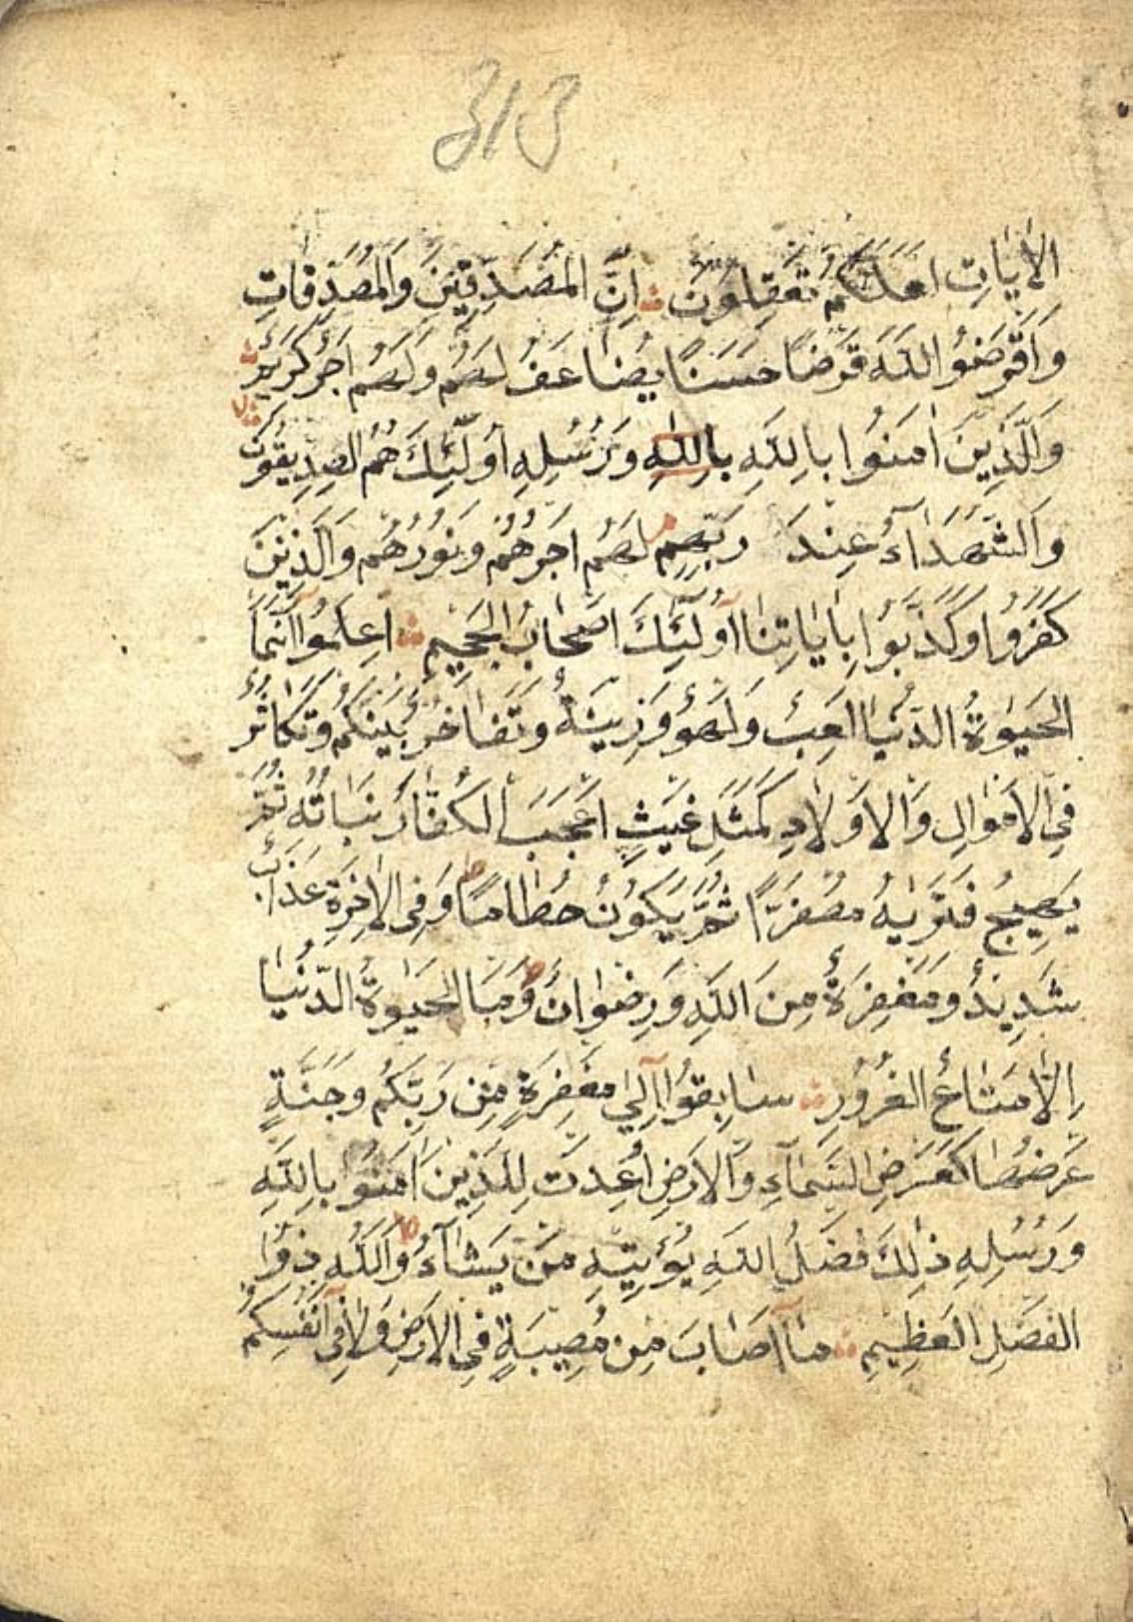 313
الْاٰيَاتِ لَعَلَّكُمْ تَعْقِلُونَ اِنَّ الْمُصَّدِّقِينَ وَالْمُصَّدِّقَاتِ
وَاَقْرَضُوا اللّٰهَ قَرْضًا حَسَنًا يُضَاعَفُ لَهُمْ وَلَهُمْ اَجْرٌ كَرِيمٌ
وَالَّذِينَ اٰمَنُوا بِاللّٰهِ بِاللّٰهِ وَرُسُلِهِ اُولٰٓئِكَ هُمُ الصِّدِّيقُونَ
وَالشُّهَدَآءُ عِنْدَ رَبِّهِمْ لَهُمْ اَجْرُهُمْ وَنُورُهُمْ وَالَّذِينَ
كَفَرُوا وَكَذَّبُوا بِاٰيَاتِنَا اُولٰٓئِكَ اَصْحَابُ الْجَحِيمِ اِعْلَمُوا اَنَّمَا
الْحَيٰوةُ الدُّنْيَا لَعِبٌ وَلَهْوٌ وَزِينَةٌ وَتَفَاخُرٌ بَيْنَكُمْ وَتَكَاثُرٌ
فِي الْاَمْوَالِ وَالْاَوْلَادِ كَمَثَلِ غَيْثٍ اَعْجَبَ الْكُفَّارَ نَبَاتُهُ ثُمَّ
يَهِيجُ فَتَرٰيهُ مُصْفَرًّا ثُمَّ يَكُونُ حُطَامًا وَفِي الْاٰخِرَةِ عَذَابٌ
شَدِيدٌ وَمَغْفِرَةٌ مِنَ اللّٰهِ وَرِضْوَانٌ وَمَا الْحَيٰوةُ الدُّنْيَا
اِلَّا مَتَاعُ الْغُرُورِ سَابِقُوا اِلٰى مَغْفِرَةٍ مِنْ رَبِّكُمْ وَجَنَّةٍ
عَرْضُهَا كَعَرْضِ السَّمَآءِ وَالْاَرْضِ اُعِدَّتْ لِلَّذِينَ اٰمَنُوا بِاللّٰهِ
وَرُسُلِهِ ذٰلِكَ فَضْلُ اللّٰهِ يُؤْتِيهِ مَنْ يَشَآءُ وَاللّٰهُ ذُوا
الْفَضْلِ الْعَظِيمِ مَآ اَصَابَ مِنْ مُصِيبَةٍ فِي الْاَرْضِ وَلَا فِي اَنْفُسِكُمْ